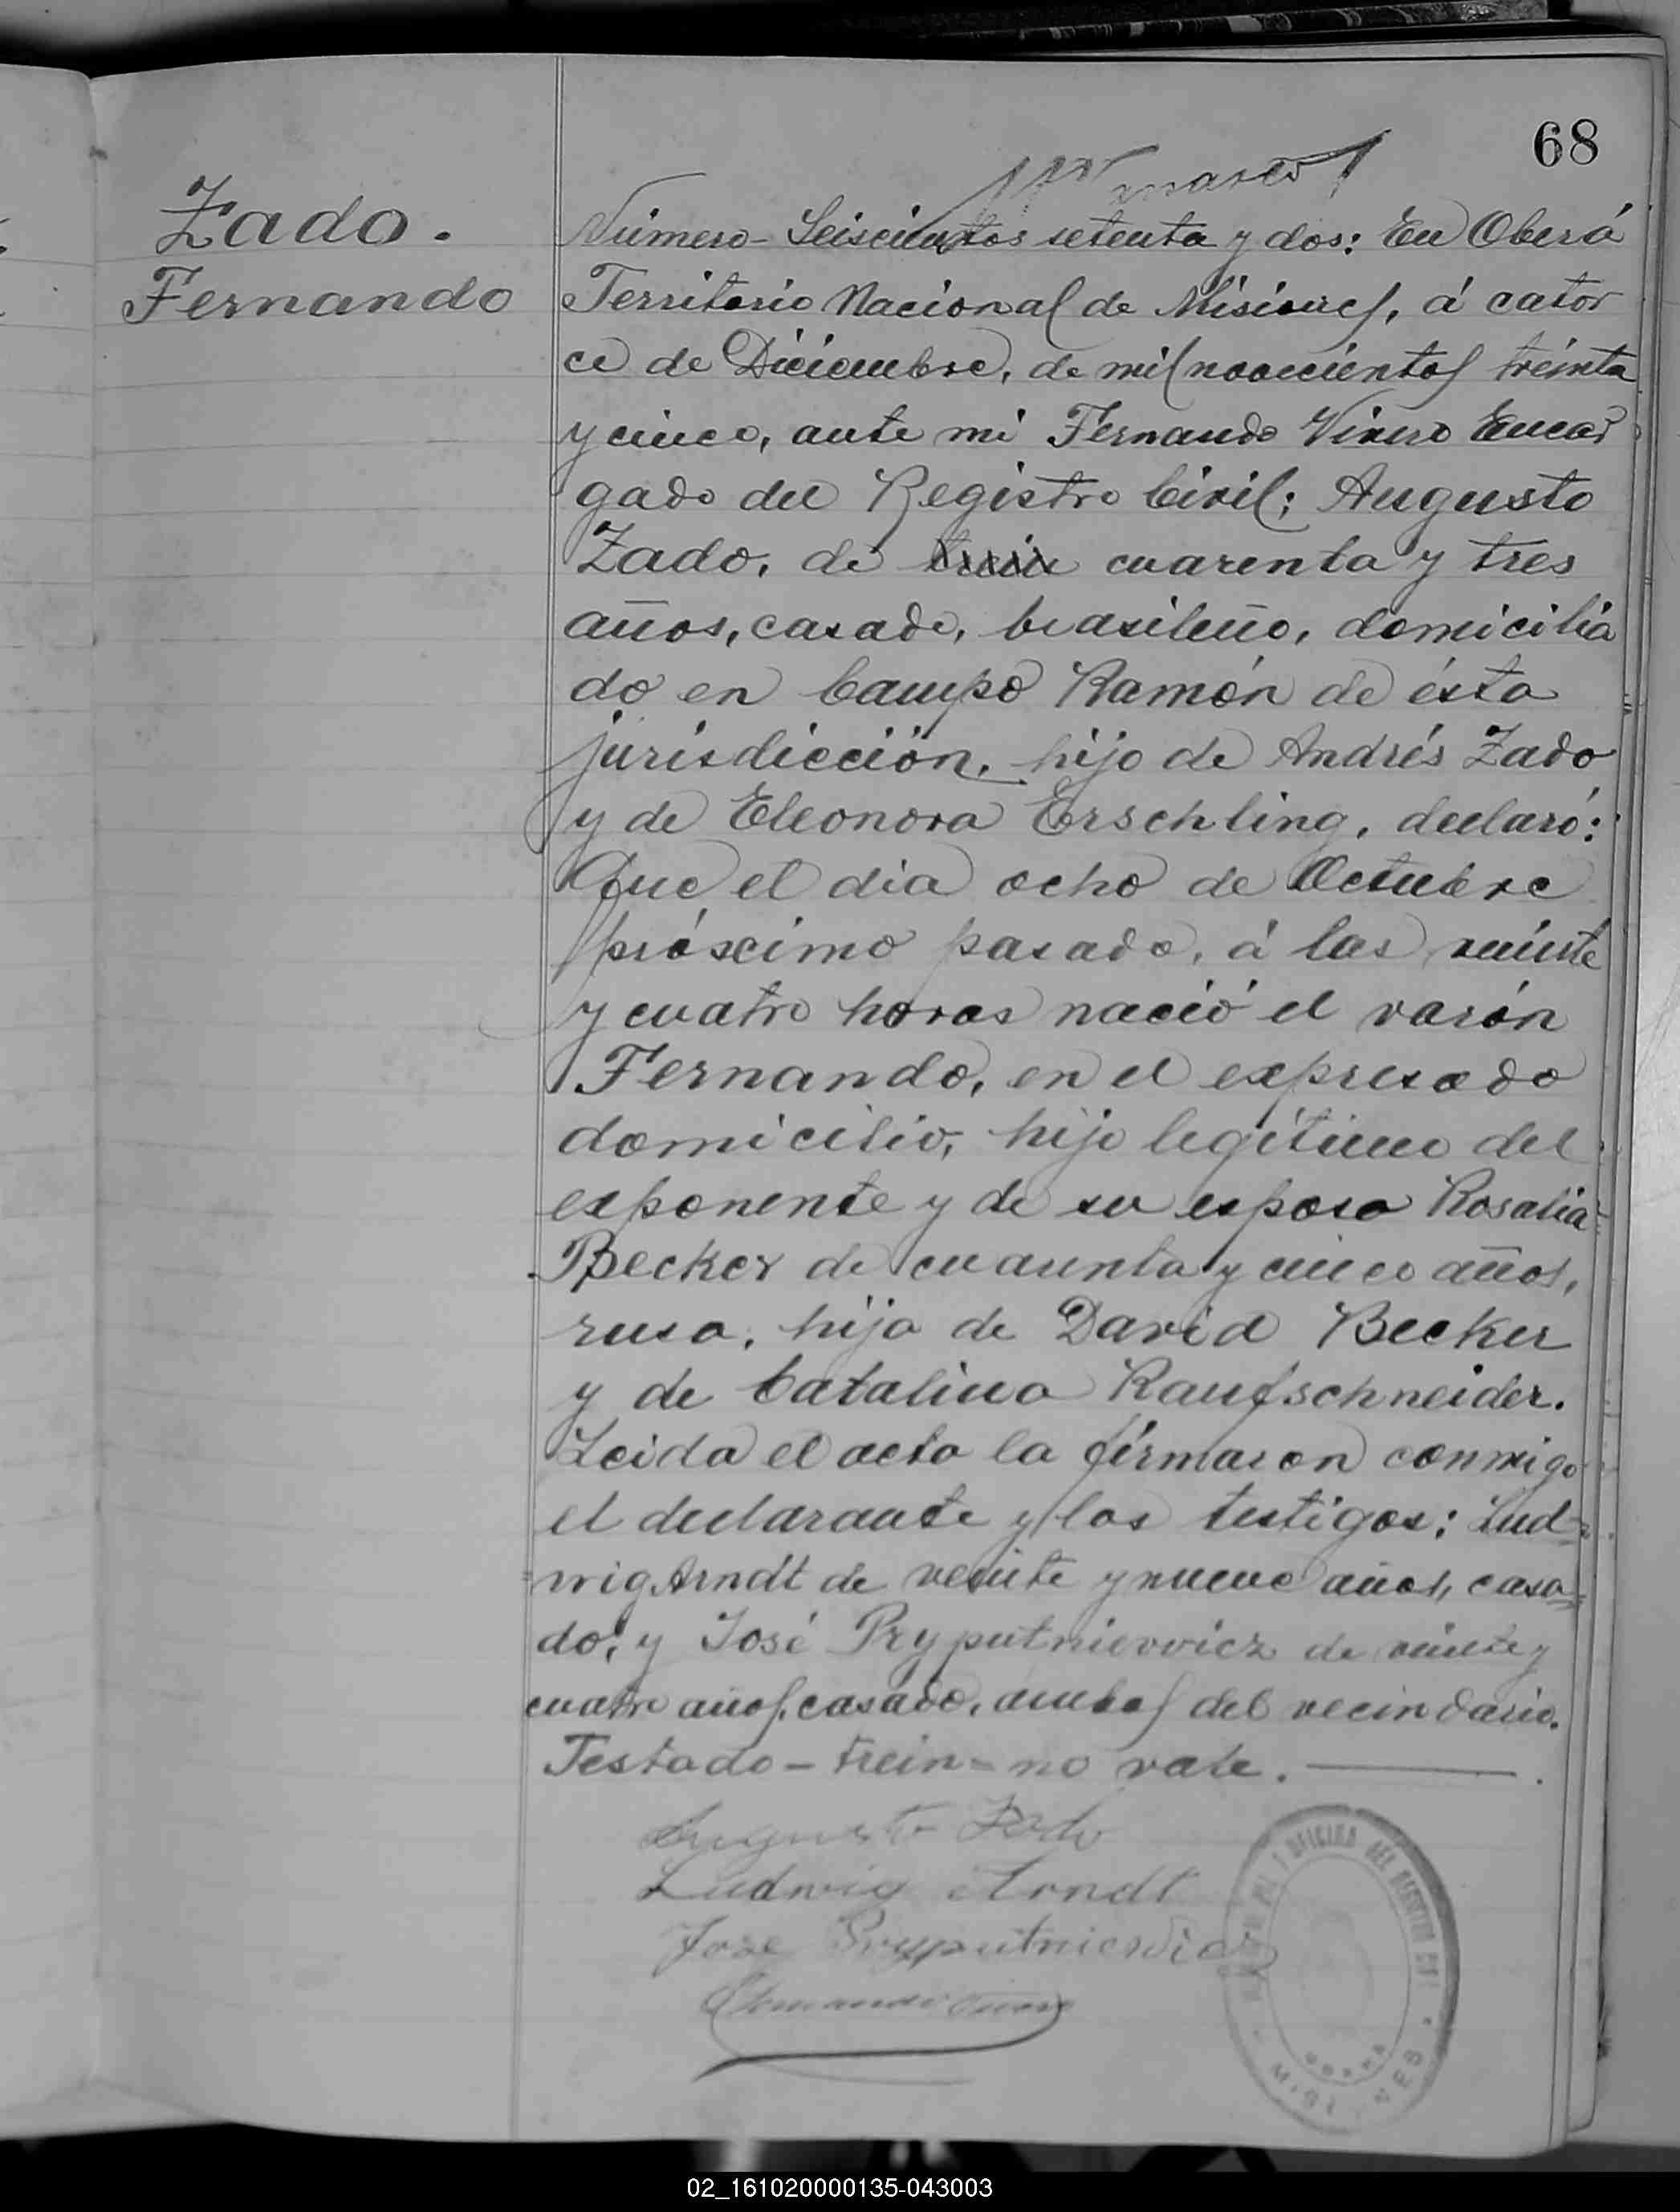 68
Zado.
Fernando
Número - Seiscientos setenta y dos: En Oberá
Territorio Nacional de Misiones, á cator
ce de Diciembre, de mil novecientos treinta
y cinco, ante mi Fernando Vivero Encar
gado del Registro Civil; Augusto
Zado, de trein cuarenta y tres
años, casado, brasileño, domicilia
do en Campo Ramón de ésta
jurisdicción, hijo de Andrés Zado
y de Eleonora Erschling, declaró:
Que el dia ocho de Octubre
próximo pasado, á las veinte
y cuatro horas nació el varón
Fernando, en el expresado
domicilio, hijo legítimo del
exponente y de su esposa Rosalia
Becker de cuarenta y cinco años,
rusa, hija de David Becker
y de Catalina Raufschneider.
Leida el acta la firmaron conmigo
el declarante y los testigos: Lud-
wig Arndt de veinte y nueve años, casa=
do, y José Pryputniewicz de veinte y
cuatro años, casado, ambos del vecindario.
Testado - trein = no vale.
Augusto Zado
Ludwig Arndt
Jose Pryputniewicz
OFICINA DEL REGISTRO CIVIL
OBERA
MISIONES
02_161020000135-043003